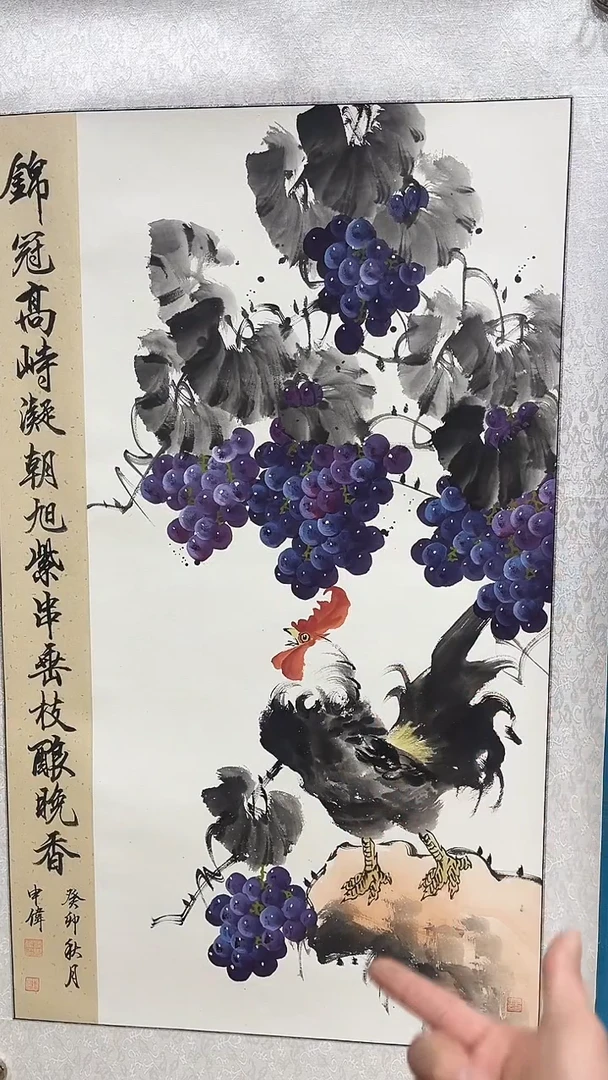 錦冠高峙凝朝旭紫串垂枝釀晚香
癸卯秋月
申偉